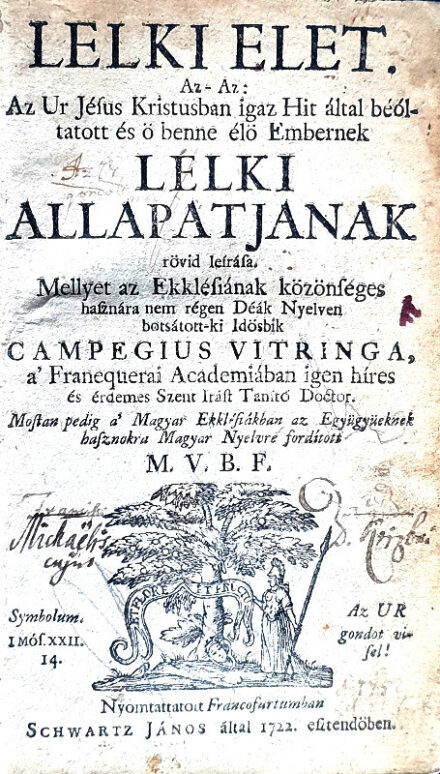 LELKI ELET.
Az-Az:
Az Ur Jéſus Kristusban igaz Hit által béól-
tatott és ö benne élö Embernek
LÉLKI
ALLAPATJANAK
rövid leíráſa,
Mellyet az Ekkléſiának közönſéges
haſznára nem régen Déák Nyelven
botsátott-ki Idösbik
CAMPEGIUS VITRINGA,
a' Franequerai Academiában igen híres
és érdemes Szent Iráſt Tanító Doctor.
Moſtan pedig a' Magyar Ekkléſiákban az Együgyüeknek
haſznokra Magyar Nyelvre fordított
M. V. B. F.
Michaëlis
cujus
E FLORE ET FRUCTU
Symbolum.
I Móſ. XXII.
14.
Az UR
gondot vi-
ſel!
Nyomtattatott Francofurtumban
SCHWARTZ JÁNOS által 1722. eſztendöben.